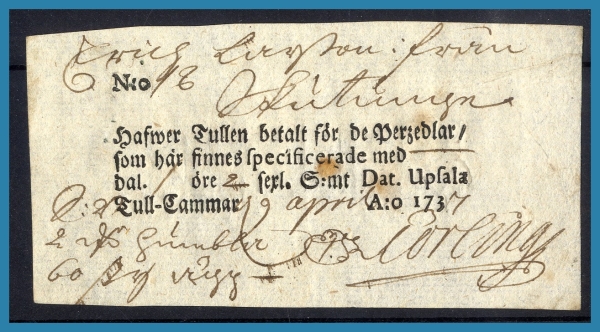 Erich Larsson: från
N:o 18
Skutunge
Hafwer Tullen betalt för de Perzedlar/
som här finnes specificerade med
dal. öre 2 serl. S:mt Dat. Upsala
Tull-Cammar 9 april A:o 1737
2 humbla
60